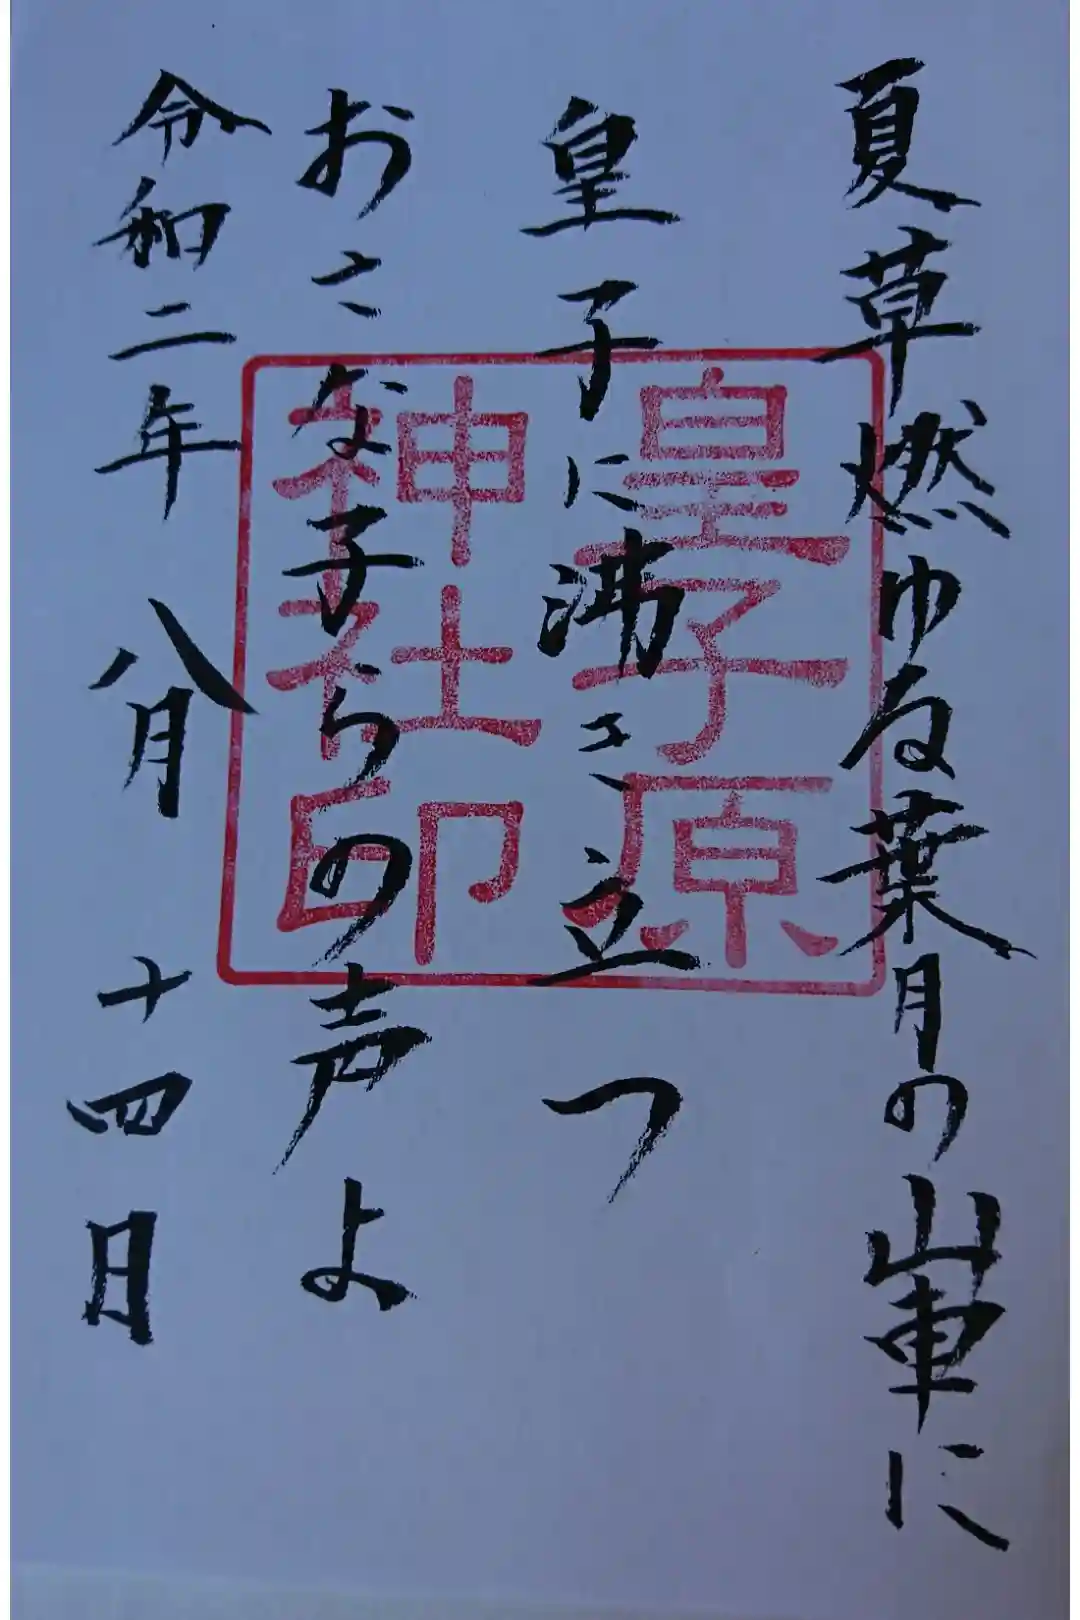 夏草燃ゆる葉月の山車に
皇子に沸き立つ
おさな子らの声よ
令和二年八月十四日
皇子原
神社印